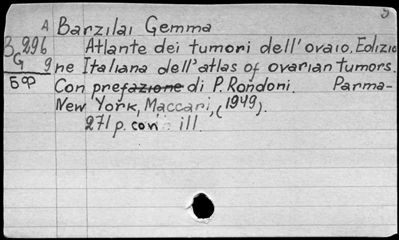 5
A Barzilai Gemma
B 296 Atlante dei tumori dell'ovaio. Edizio
G 9 ne Italiana dell'atlas of ovarian tumors.
БФ Con prefazione di P. Rondoni. Parma-
New York, Maccari, (1949).
271 p. con ill.